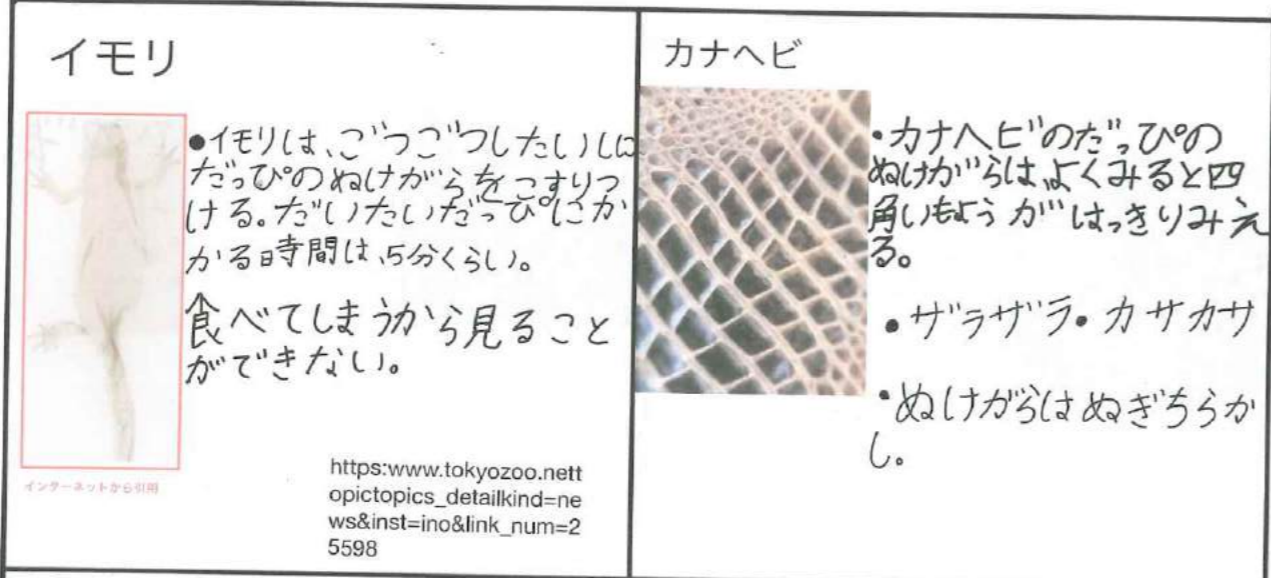 イモリ
●イモリは、ごつごつしたいしに
だっぴのぬけがらをこすりつ
ける。だいたいだっぴにか
かる時間は、5分くらい。
食べてしまうから見ること
ができない。
インターネットから引用
https:www.tokyozoo.nett
opictopics_detailkind=ne
ws&inst=ino&link_num=2
5598
カナヘビ
・カナヘビのだっぴの
ぬけがらは、よくみると四
角いもようがはっきりみえ
る。
●ザラザラ●カサカサ
・ぬけがらはぬぎちらか
し。